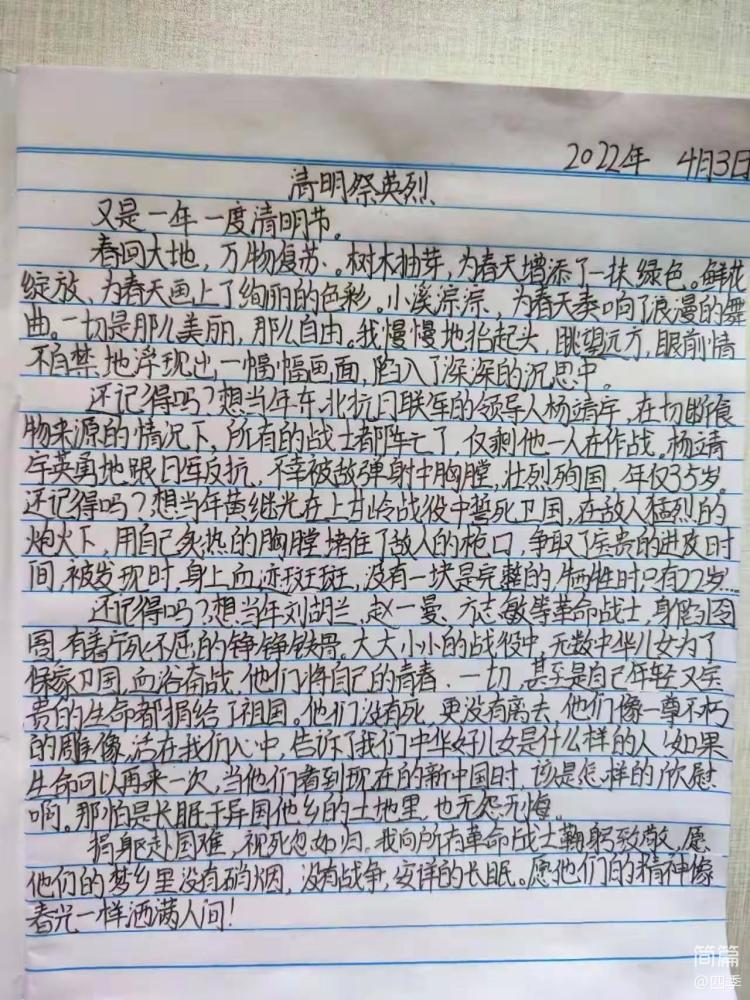 2022年 4月3日
清明祭英烈
又是一年一度清明节。
春回大地，万物复苏。树木抽芽，为春天增添了一抹绿色。鲜花
绽放，为春天画上了绚丽的色彩。小溪淙淙，为春天奏响了浪漫的舞
曲。一切是那么美丽，那么自由。我慢慢地抬起头，眺望远方，眼前情
不自禁地浮现出一幅幅画面，陷入了深深的沉思中。
还记得吗？想当年东北抗日联军的领导人杨靖宇，在切断食
物来源的情况下，所有的战士都阵亡了，仅剩他一人在作战，杨靖
宇英勇地跟日军反抗，不幸被敌弹射中胸膛，壮烈殉国，年仅35岁。
还记得吗？想当年黄继光在上甘岭战役中誓死卫国，在敌人猛烈的
炮火下，用自己炙热的胸膛堵住了敌人的枪口，争取了宝贵的进攻时
间，被发现时，身上血迹斑斑，没有一块是完整的，牺牲时只有22岁……
还记得吗？想当年刘胡兰、赵一曼、方志敏等革命战士，身陷囹
圄，有着宁死不屈的铮铮铁骨。大大小小的战役中，无数中华儿女为了
保家卫国，血浴奋战，他们将自己的青春，一切，甚至是自己年轻又宝
贵的生命都捐给了祖国。他们没有死，更没有离去，他们像一尊不朽
的雕像，活在我们心中，告诉了我们中华好儿女是什么样的人！如果
生命可以再来一次，当他们看到现在的新中国时，该是怎样的欣慰
啊。那怕是长眠于异国他乡的土地里，也无怨无悔。
捐躯赴国难，视死忽如归。我向所有革命战士鞠躬致敬，愿
他们的梦乡里没有硝烟，没有战争，安祥的长眠。愿他们的精神像
春光一样洒满人间！
简篇
@四季